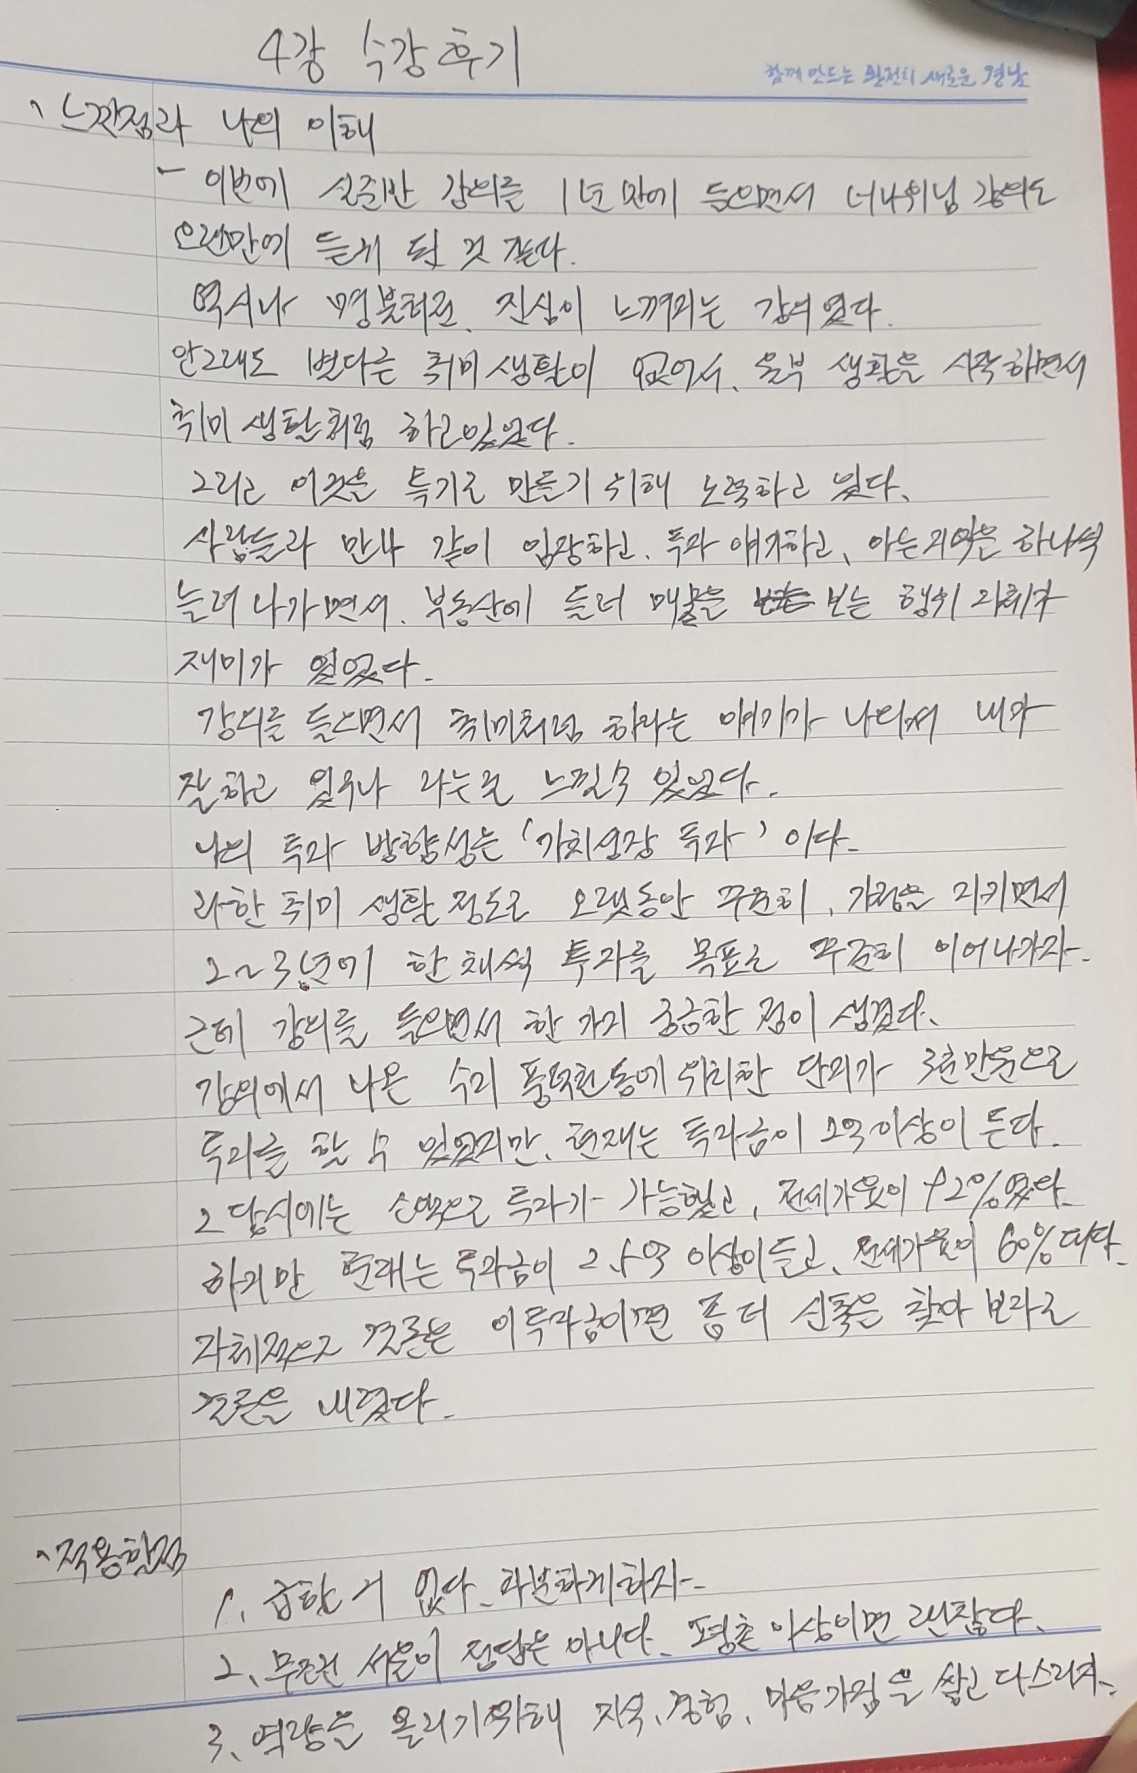 4강 수강후기
함께 만드는 완전히 새로운 경남
、느낀점과 나의 이해
- 이번에 실준반 강의를 1년만에 들으면서 너나위님 강의도
오랜만에 듣게 된 것 같다.
역시나 명불허전. 진심이 느껴지는 강의였다.
안그래도 별다른 취미생활이 없어서, 월부 생활을 시작하면서
취미생활처럼 하고있었다.
그리고 이것을 특기로 만들기 위해 노력하고 있다.
사람들과 만나 같이 임장하고, 투자 얘기하고, 아는 지역을 하나씩
늘려 나가면서, 부동산에 들러 매물을 보는 행위 자체가
재미가 있었다.
강의를 들으면서 취미처럼 하라는 얘기가 나와서 내가
잘하고 있구나 라는걸 느낄수 있었다.
나의 투자 방향성은 '가치성장 투자' 이다.
과한 취미 생활 정도로 오랫동안 꾸준히, 가정을 지키면서
2~3년에 한채씩 투자를 목표로 꾸준히 이어나가자.
근데 강의를 들으면서 한 가지 궁금한 점이 생겼다.
강의에서 나온 수지 풍덕천동에 위치한 단지가 3천만원으로
투자를 할 수 있었지만, 현재는 투자금이 2억이상이 든다.
그 당시에는 소액으로 투자가 가능했고, 전세가율이 92%였다.
하지만 현재는 투자금이 2.5억 이상이 들고, 전세가율이 60%대다.
자체적으로 결론은 이 투자금이면 좀 더 신축을 찾아 보자로
결론을 내렸다.
、적용할점
1. 급할 거 없다. 차분하게하자.
2. 무조건 서울이 정답은 아니다. 평촌 이상이면 괜찮다.
3. 역량을 올리기위해 지식, 경험, 마음가짐을 쌓고 다스리자.